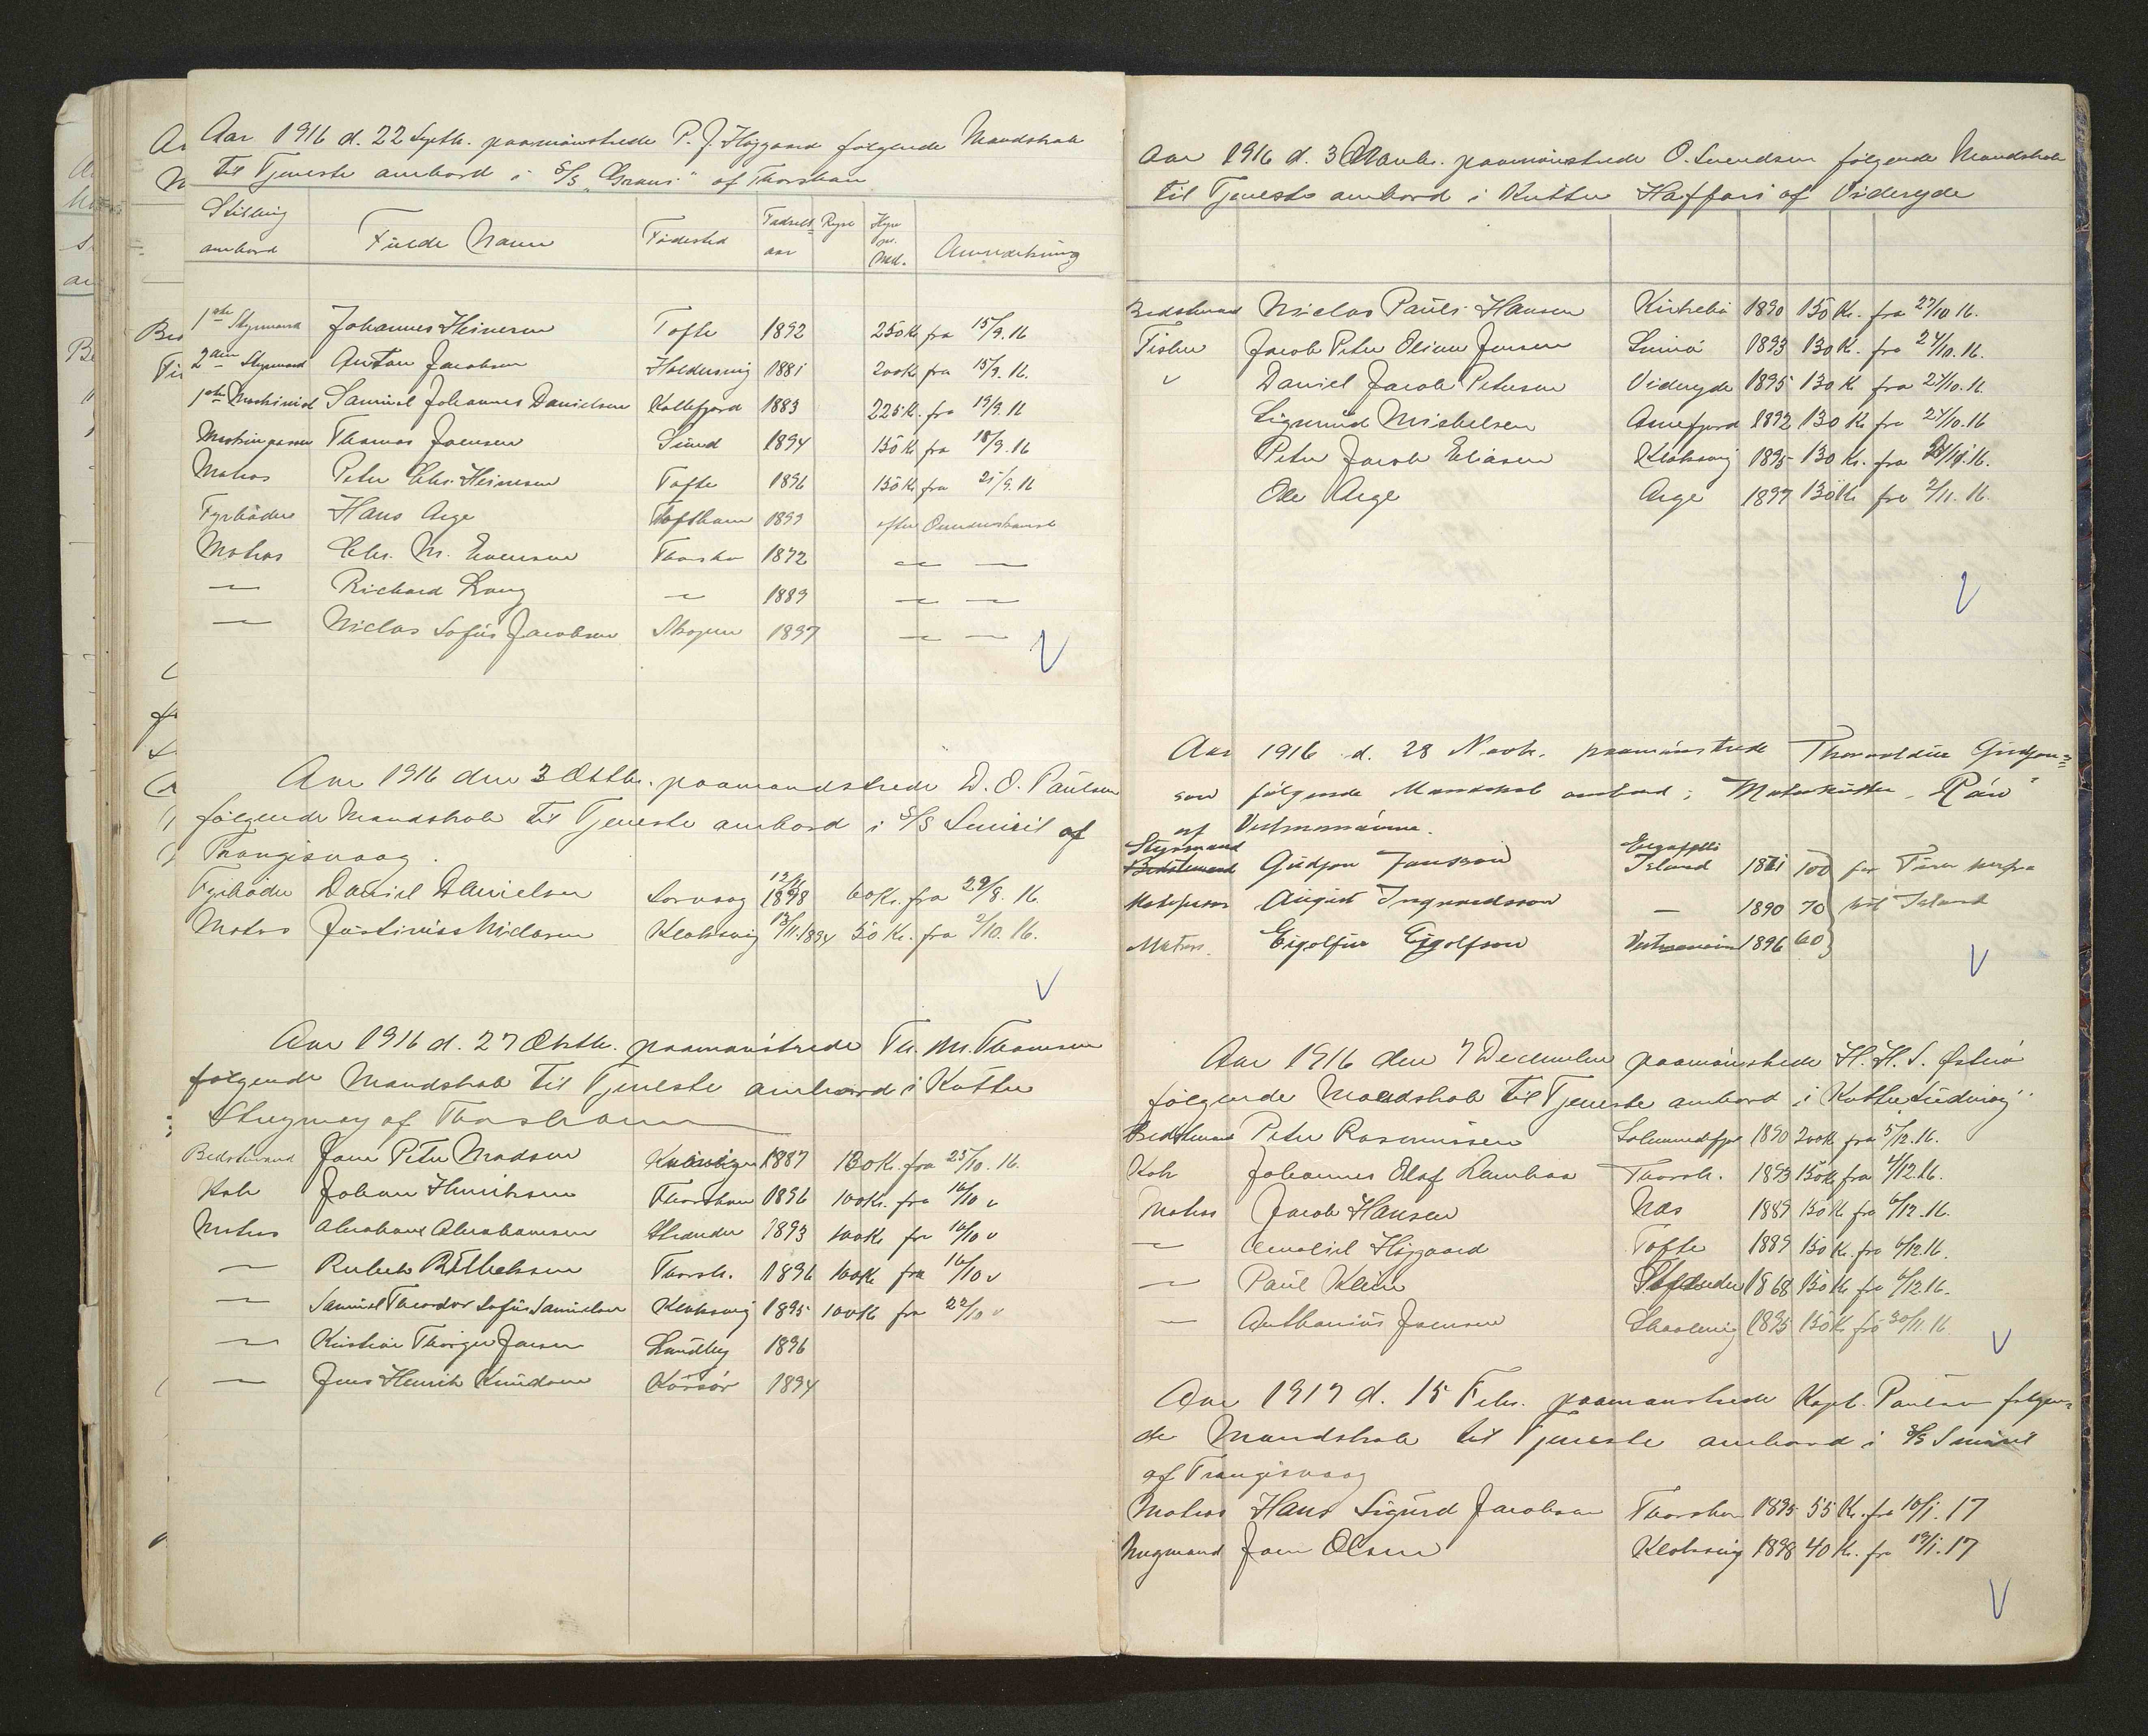 Aar 1916 d. 22 Septb. paamönstrede P. J. Höjgaard følgende Mandskab
til Tjeneste ombord i S/S „Grani“ af Thorshavn
Stilling ombord Fulde Navn Fødested Fødsels= aar Rejse Hyre pr. Md. Anmærkning
1ste Styrmand Johannes Heinesen Tofte 1892 250 K fra 15/9. 16
2den Styrmand Anton Jacobsen Haldersvig 1881 200 K fra 15/9. 16.
1ste Maskinist Samuel Johannes Danielsen Kollefjord 1883 225 K. fra 19/9. 16
Maskinpasser Thomas Joensen Sund 1894 150 K fra 18/9. 16
Matros Peter Chr. Heinesen Tofte 1896 150 K fra 21/9. 16
Fyrbøder Hans Arge 1899 efter Overenskomst
Matros Chr. M. Evensen Thorshavn 1872 — —
— Richard Long — 1889 — —
— Niclas Sofus Jacobsen Skopen 1897 — —
Aar 1916 den 3 Oktbr. paamønstrede D. O. Paulsen
følgende Mandskab til Tjeneste ombord i S/S Smiril af
Trangisvaag.
Fyrbøder Daniel Danielsen Sorvaag 1898 60 Kr. fra 29/8. 16.
Matros Justinus Niclasen Klaksvig 13/11. 1894 50 Kr. fra 2/10. 16.
Aar 1916 d. 27 Oktb. paamønstrede Th. M. Thomsen
følgende Mandskab til Tjeneste ombord i Kutter
Streymoy af Thorshavn
Bedstemand Joen Peter Madsen Kvivig 1887 130 K. fra 25/10. 16.
Kok Johan Henriksen Thorshavn 1896 100 K. fra 16/10 "
Matros Abraham Abrahamsen Strander 1893 100 K. fra 16/10 "
— Thorsh. 1896 100 K fra 16/10 "
— Samuel Theodor Sofus Samuelsen Klaksvig 1895 100 K fra 22/10 "
— Kristian Joensen Sandby 1896
— Jens Henrik Knudsen Korsör 1894
Aar 1916 d. 3 Novb. paamönstrede O. Svendsen følgende Mandskab
til Tjeneste ombord i Kutter Haffari af Videreyde
Bedstemand Niclas Pauli Hansen Kirkebö 1890 150 K. fra 27/10 16.
Fisker Jacob Peter Jensen 1893 130 K. fra 24/10. 16.
" Daniel Jacob Petersen Videreyde 1895 130 K fra 24/10. 16
Sigmund Michelsen Arnefjord 1892 130 K fra 24/10. 16
Peter Jacob Eliasen Klaksvig 1895 130 K. fra 16.
Ole Arge Arge 1897 130 K fra 2/11. 16.
Aar 1916 d. 28 Novb. paamönstrede Thorvaldur Gudjon=
son følgende Mandskab ombord i Motorkutter „Rán“
af
Styrmand Gudjon Jonsson Island 1871 100
Motorpasser August Ingvardsson — 1890 70 til Island
Matros. Eigolfur Eigolfson 1896 60
Aar 1916 den 7 December paamönstrede H. H. S. Østerö
følgende Mandskab til Tjeneste ombord i Kutter Ludvig“
Bedstemand Peter Rasmussen Solmundefjord 1890 200 K fra 5/12. 16.
Kok Johannes Olaf Lamhaa Thorsh. 1893 150 K fra 4/12. 16.
Matros Jacob Hansen Næs 1889 150 K fra 6/12. 16.
— Höjgaard Tofte 1889 150 K. fra 6/12. 16.
— Paul Klein 1868 150 K fra 6/12. 16.
— Anthonius Joensen Skaalevig 1895 150 K fra 30/11. 16
Aar 1917 d. 15 Febr. paamønstrede Kapt. Paulsen følgen=
de Mandskab til Tjeneste ombord i S/S Smiril
af Trangisvaag
Matros Hans Sigurd Jacobsen Thorshavn 1895 55 K. fra 10/1. 17
Ungmand Joen Olsen Klaksvig 1898 40 K. fra 19/1. 17